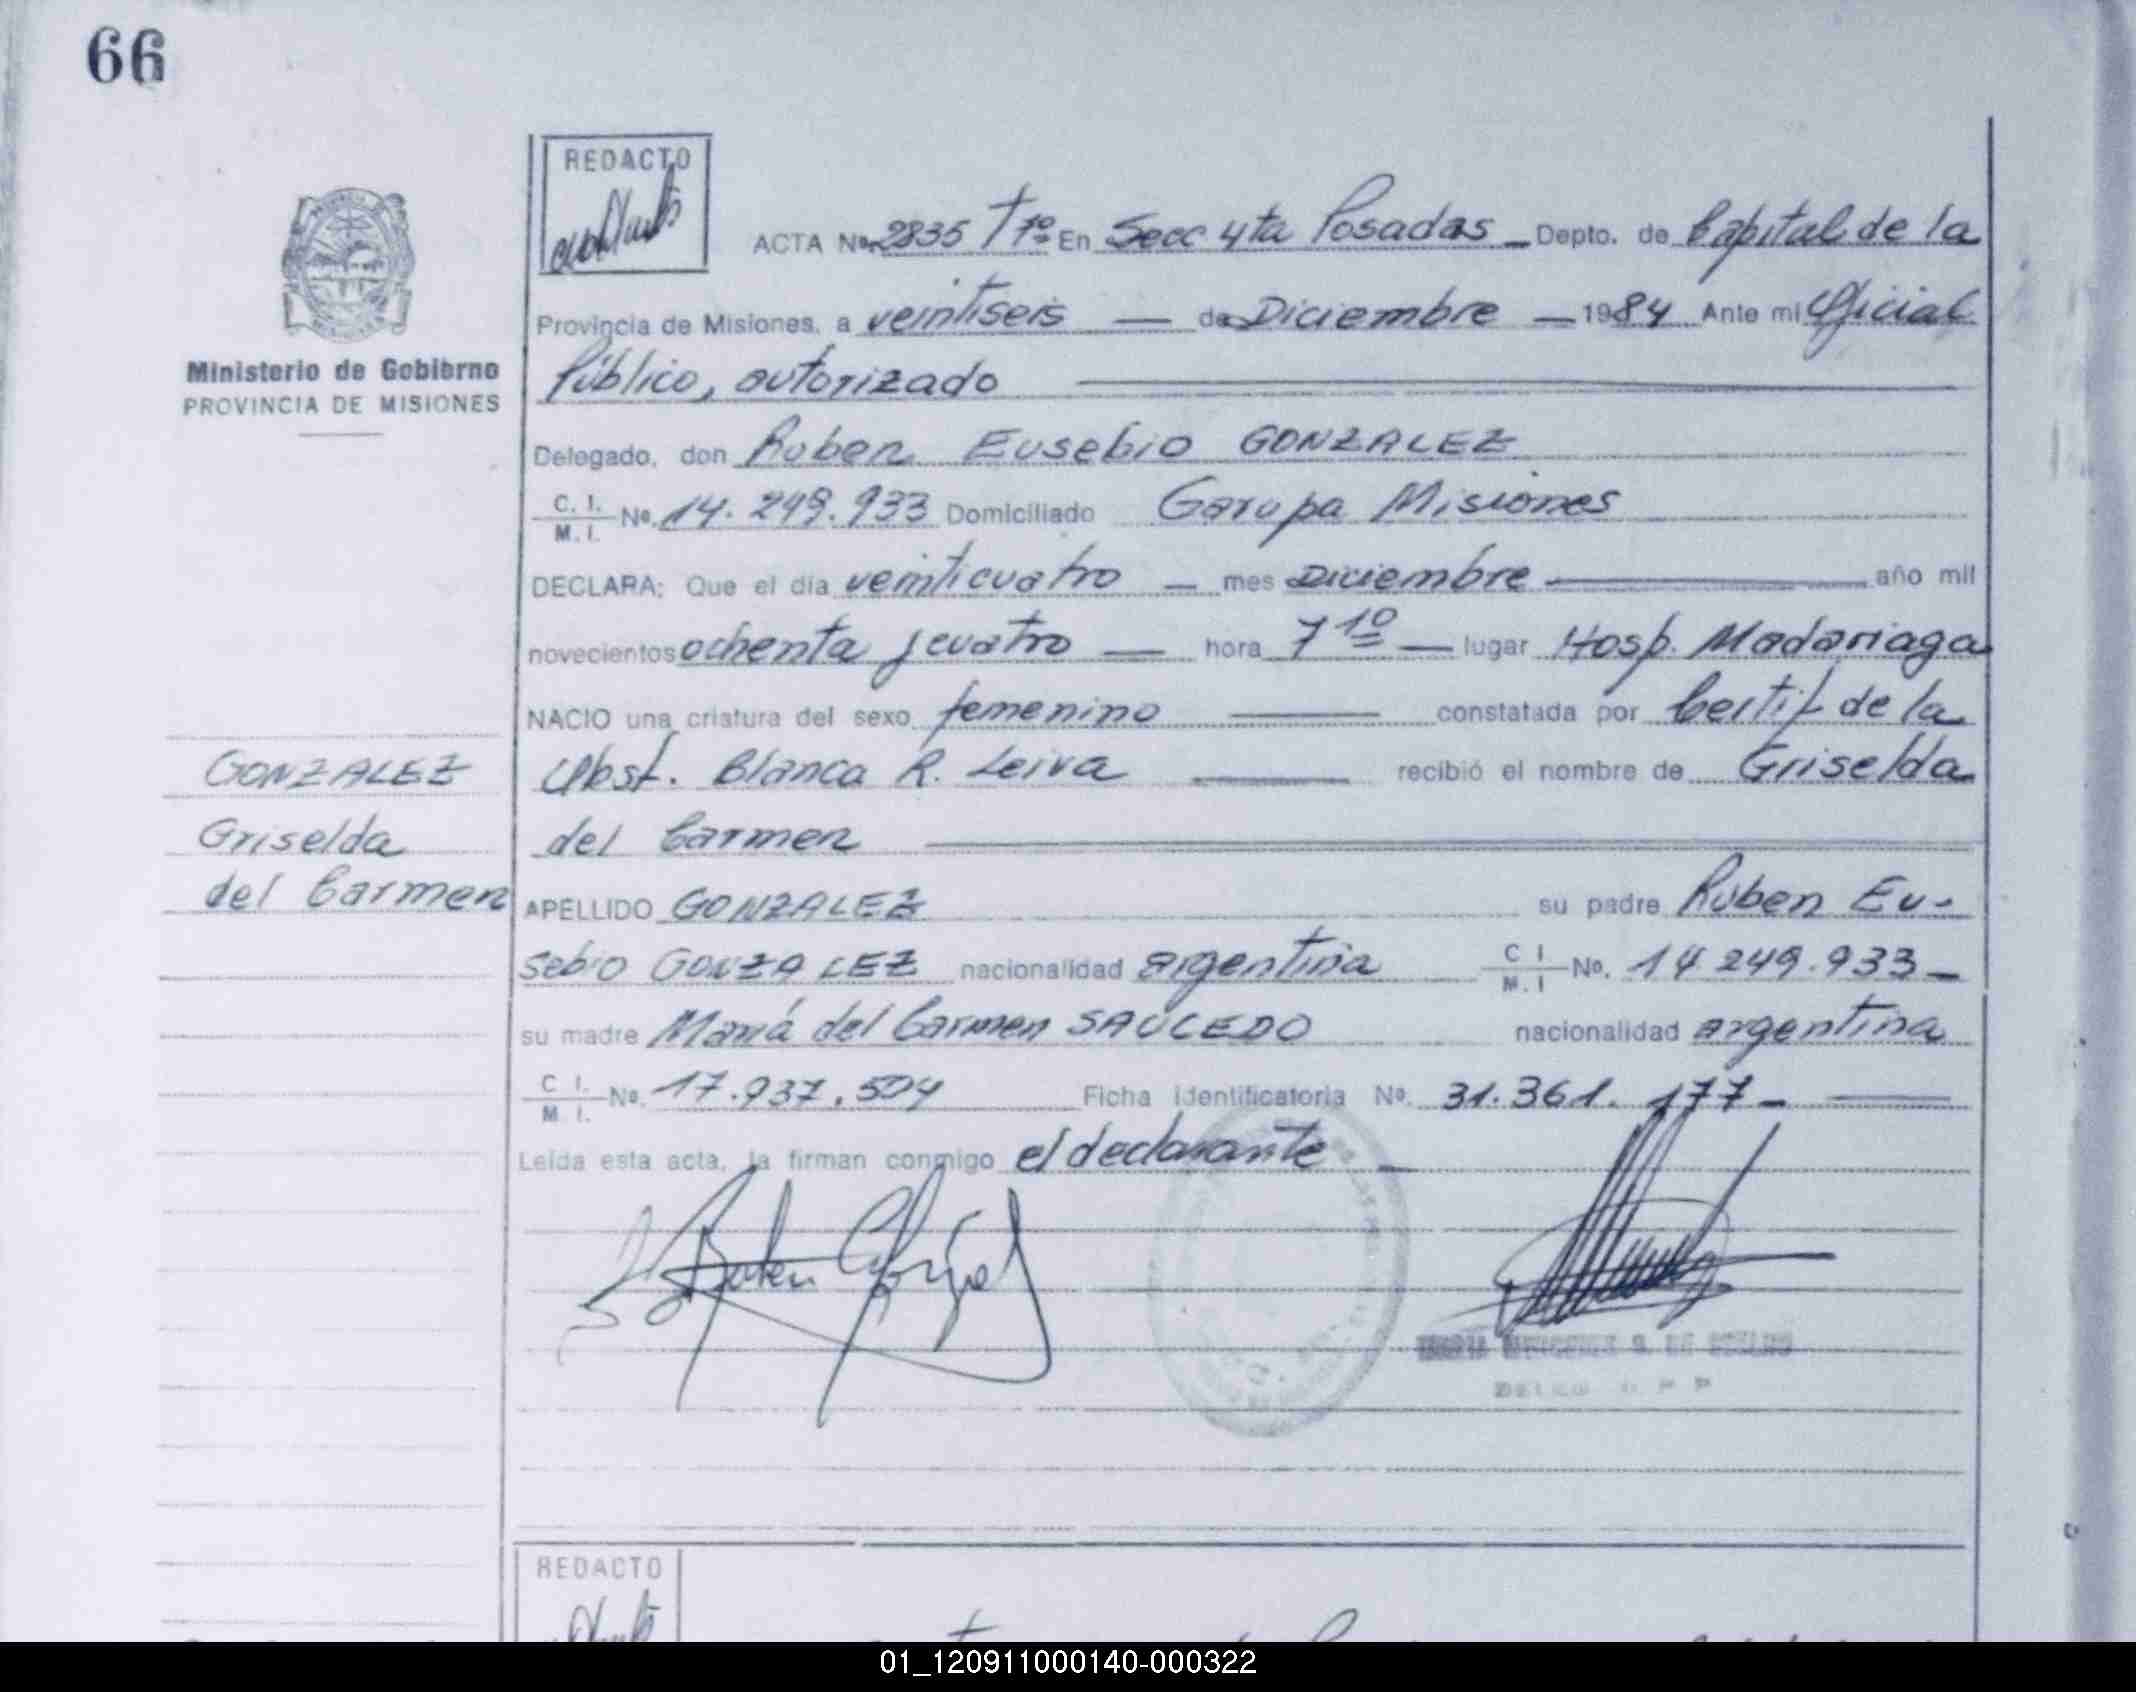 66
REDACTO
ACTA No. 2835 Tº 1º En Secc 4ta Posadas — Depto. de Capital de la
Provincia de Misiones, a veintiseis — de Diciembre — 1984 Ante mi Oficial
Ministerio de Gobierno
PROVINCIA DE MISIONES
Público, autorizado
Delegado, don Ruben Eusebio GONZALEZ
C. I. / M. I. No. 14.249.933 Domiciliado Garupa Misiones
DECLARA: Que el día veinticuatro — mes Diciembre — año mil
novecientos ochenta y cuatro — hora 7 10 — lugar Hosp. Madariaga
NACIO una criatura del sexo femenino — constatada por Certif de la
Obst. Blanca R. Leiva — recibió el nombre de Griselda
del Carmen
GONZALEZ
Griselda
del Carmen
APELLIDO GONZALEZ su padre Ruben Eu-
sebio GONZALEZ nacionalidad argentina C I / M. I No. 14 249.933 —
su madre María del Carmen SAUCEDO nacionalidad argentina
C I. / M I. No. 17.937.504 Ficha Identificatoria No. 31.361.177 —
Leída esta acta, la firman conmigo el declarante —
REDACTO
01_120911000140-000322